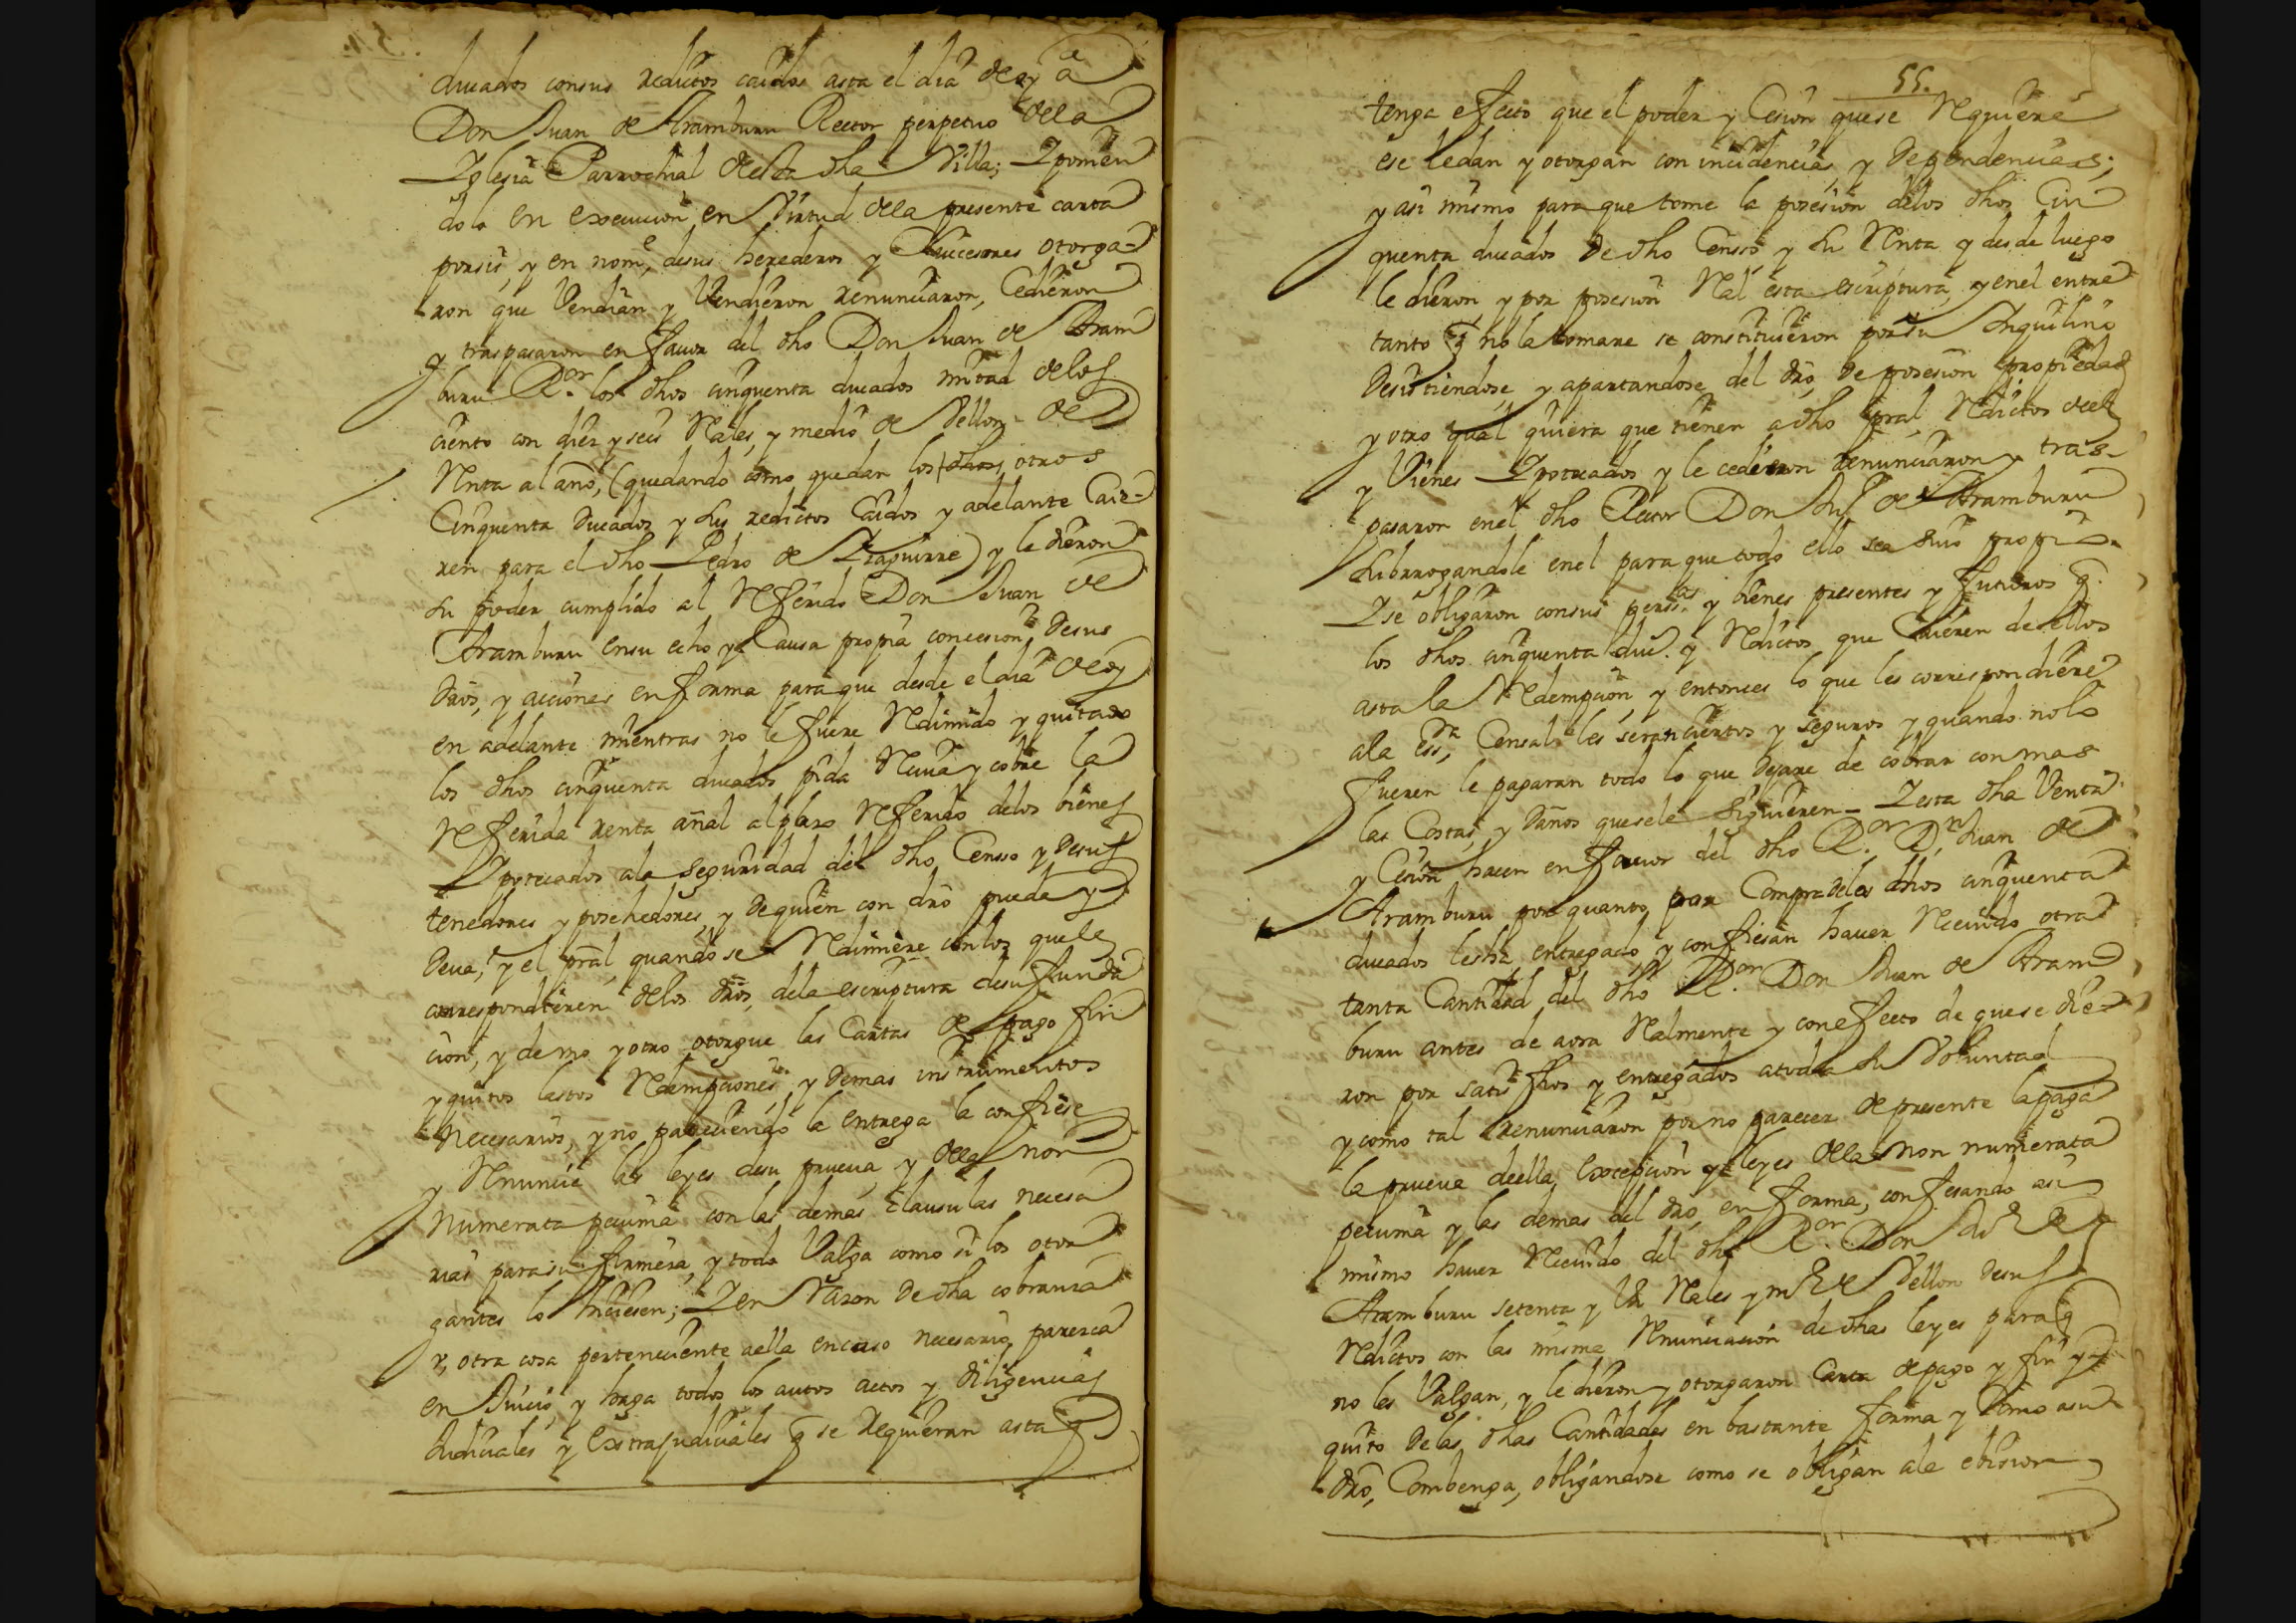 ducados consus reditos caidos asta el dia de oy â
Don Juan de Aramburu Rector perpetuo dela
Yglesia Parrochial desta dha Villa; Y ponien
dolo en execucion en Virtud dela presente carta
porsis, y en nome, desus herederos y Succesores otorga=
ron que Vendian y Vendieron renunciaron, Cedieron
y traspasaron en fauor del dho Don Juan de Aram
buru R.or los dhos cinquenta ducados mitad delos
ciento con diez y seis Rales, y medio de Vellon de
Renta al año, (quedando como quedan los dhos otros
Cinquenta Ducados y sus reditos Caidos y adelante Caie=
ren para el dho Pedro de Yzaguirre) y le dieron
su poder cumplido al Referido Don Juan de
Aramburu ensu echo y Causa propia concesion Desus
dros, y acciones en forma para que desde el dia de oy
en adelante mientras no le fuere Redimido y quitado
los dhos cinquenta ducados pida Reciua y cobre la
Referida renta añal al plazo Referido delos bienes
Ypotecados ala seguridad del dho Censso y Desus
tenedores y posehedores, y de quien con dro pueda y
Deua, y el pral quando se Redimiere con los que le
correspondieren delos dros, dela escriptura desu funda
cion, y de vno y otro otorgue las Cartas de pago fin
y quitos lastos Redempciones, y Demas instrumentos
necesarios, y no pareciendo la entrega la confiese
y Renuncie las leyes desu prueua, y dela non
numerata pecunia con las demas Clausulas necesa
rias para su firmeza, y todo Valga como si los otor
gantes lo hiciesen; Y en Razon de dha cobranza
y, otra cosa perteneciente aella encaso necesario, parezca
en Juicio, y haga todos los autos actos y diligencias
Judiciales y Extrajudiciales q se Requieran asta q
55.
tenga efecto que el poder y Cesion que se Requiere
ese le dan y otorgan con incidencias, y Dependencias;
y asi mismo para que tome la posesion delos dhos Cin
quenta ducados De dho Censso y su Renta y desde luego
le dieron, y por posesion Ral esta escriptura, y enel entre
tanto q no la tomare se constituieron por su Inquilino
Desistiendose, y apartandose del dro, De posesion propiedad
y otro qual quiera que tienen a dho pral, Reditos del
y Vienes Ypotecados y le cedieron renunciaron y tras-
pasaron enel dho Rector Don Jun de Aramburu
subrrogandole enel para que todo ello sea suio propio.
Y se obligaron consus perss.as y bienes presentes y futuros q.
los dhos cinquenta du.s y Reditos que Caieren de ellos
asta la Redempcion, y entonces lo que les correspondiere
ala ess.ra Censal les seran ciertos y seguros y quando nolo
fueren le pagaran todo lo que Dejare de cobrar con mas
las Costas, y Daños quesele siguieren- Y esta dha Venta
y Cesion hacen en fauor del dho R.or D.n Juan de
Aramburu por quanto, por Compra delos dhos cinquenta
ducados lesha entregado, y confiesan hauer Reciuido otra
tanta Cantidad del dho R.or Don Juan de Aram
buru antes de aora Ralmente y con efecto de que se die-
ron por satisfhos y entregados atoda su Voluntad
y como tal renunciaron por no parecer de presente la paga
la prueua deella, Excepcion y leyes dela non numerata
pecunia y las demas del dro, en forma, confesando asi
mismo hauer Reciuido del dho R.or Don Jun de
Aramburu setenta y Vn Rales y mº de Vellon Desus
Reditos con las misma Renunciacion de dhas leyes para q
no les Valgan, y le dieron y otorgaron Carta de pago y fin y
quito Delas dhas Cantidades en bastante forma y Como asu
dro, Combenga, obligandose como se obligan ala ebision